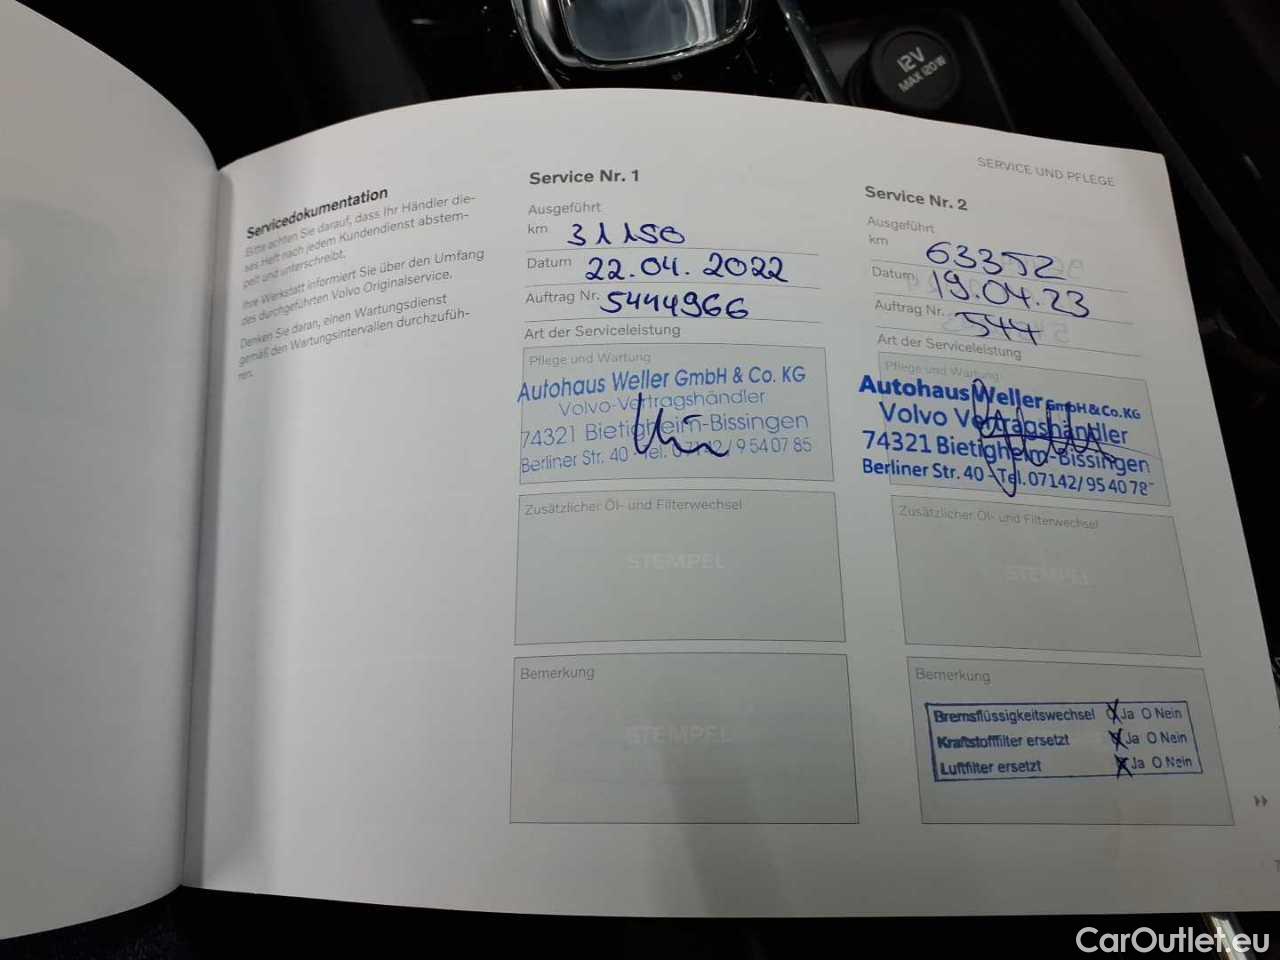 12V
MAX 120W
SERVICE UND PFLEGE
Servicedokumentation
Bitte achten Sie darauf, dass Ihr Händler die-
ses Heft nach jedem Kundendienst abstem-
pelt und unterschreibt.
Ihre Werkstatt informiert Sie über den Umfang
des durchgeführten Volvo Originalservice.
Denken Sie daran, einen Wartungsdienst
gemäß den Wartungsintervallen durchzufüh-
ren.
Service Nr. 1
Ausgeführt
km 31150
Datum 22.04.2022
Auftrag Nr. 5444966
Art der Serviceleistung
Pflege und Wartung
Autohaus Weller GmbH & Co. KG
Volvo-Vertragshändler
74321 Bietigheim-Bissingen
Berliner Str. 40 - Tel. 07142/9540785
Zusätzlicher Öl- und Filterwechsel
STEMPEL
Bemerkung
STEMPEL
Service Nr. 2
Ausgeführt
km 63352
Datum 19.04.23
Auftrag Nr. 544
Art der Serviceleistung
Pflege und Wartung
Autohaus Weller GmbH & Co. KG
Volvo Vertragshändler
74321 Bietigheim-Bissingen
Berliner Str. 40 - Tel. 07142/954078
Zusätzlicher Öl- und Filterwechsel
STEMPEL
Bemerkung
Bremsflüssigkeitswechsel X Ja O Nein
Kraftstofffilter ersetzt X Ja O Nein
Luftfilter ersetzt X Ja O Nein
CarOutlet.eu